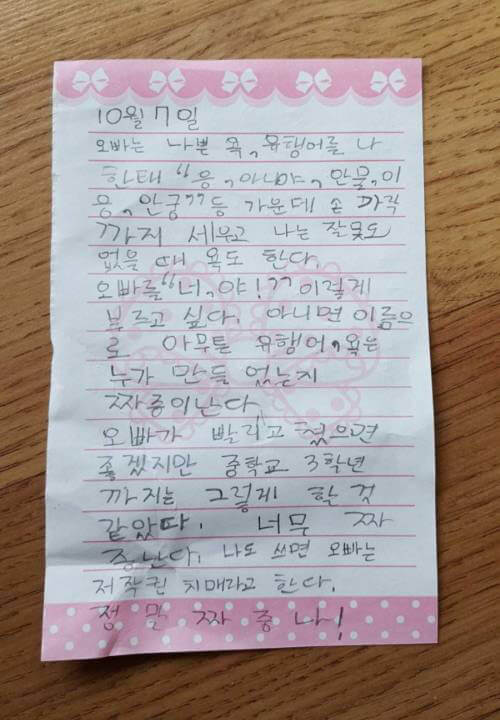 10월 7일
오빠는 나쁜 욕, 유행어를 나
한태 "응, 아니야, 안물, 이
응, 안궁" 등 가운데 손 까락
까지 세우고 나는 잘못도
없을 때 욕도 한다.
오빠를 "너, 야!" 이렇게
부르고 싶다. 아니면 이름으
로 아무튼 유행어, 욕은
누가 만들 었는지
짜증이난다
오빠가 빨리고 쳤으면
좋겠지만 중학교 3학년
까지는 그렇게 할 것
같았다. 너무 짜
증난다. 나도 쓰면 오빠는
저작권 치매라고 한다.
정말 짜증나!